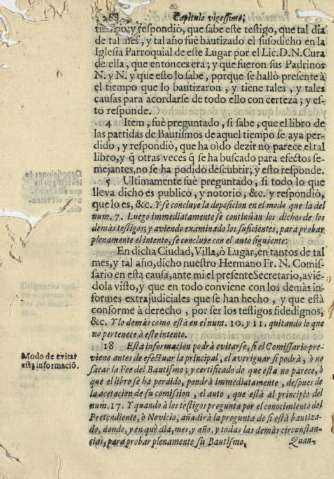 268 Capitulo vigessimo,
tiempo; y respondiò, que sabe este testigo, que tal dia
de tal mes, y tal año fue bautizado el susodicho en la
Iglesia Parroquial de este Lugar por el Lic. D. N. Cura
de ella, que entonces era; y que fueron sus Padrinos
N. y N. y que esto lo sabe, porque se hallò presente à
el tiempo que lo bautizaron, y tiene tales, y tales
causas para acordarse de todo ello con certeza; y es-
to responde.
4 Item, fue preguntado, si sabe, que el libro de
las partidas de Bautismos de aquel tiempo se aya per-
dido, y respondiò, que ha oìdo dezir no parece el tal
libro, y q̃ otras veces q̃ se ha buscado para efectos se-
mejantes, no se ha podido descubrir, y esto responde.
5 Ultimamente fue preguntado, si todo lo que
lleva dicho es publico, y notorio, &c. y respondiò,
que lo es, &c. Y se concluye la deposicion en el modo que la del
num. 7. Luego immediatamente se continùan los dichos de los
demàs testigos, y aviendo examinado los suficientes, para probar
plenamente el intento, se concluye con el auto siguiente:
En dicha Ciudad, Villa, ò Lugar, en tantos de tal
mes, y tal año, dicho nuestro Hermano Fr. N. Comis-
sario en esta causa, ante mi el presente Secretario, avié-
dola visto, y que en todo conviene con los demàs in-
formes extrajudiciales que se han hecho, y que està
conforme à derecho, por ser los testigos fidedignos,
&c. Y lo demàs como està en el num. 10. y 11. quitando lo que
no pertenece à este intento.
Modo de evitar
esta informaciõ.
18 Esta informacion podrà evitarse, si el Comissario pre-
viene antes de efectuar la principal, el averiguar si podrà, ò no
sacar la Fee del Bautismo; y certificado de que esta no parece, ò
que el libro se ha perdido, pondrà immediatamente, despues de
la acetacion de su comission, el auto, que està al principio del
num. 17. Y quando à los testigos pregunta por el conocimiento del
Pretendiente, ò Novicio, añadirà la pregunta de si està bautiza-
do, donde, y en què dia, mes, y año, y todas las demàs circunstan-
cias, para probar plenamente su Bautismo.
Quan-